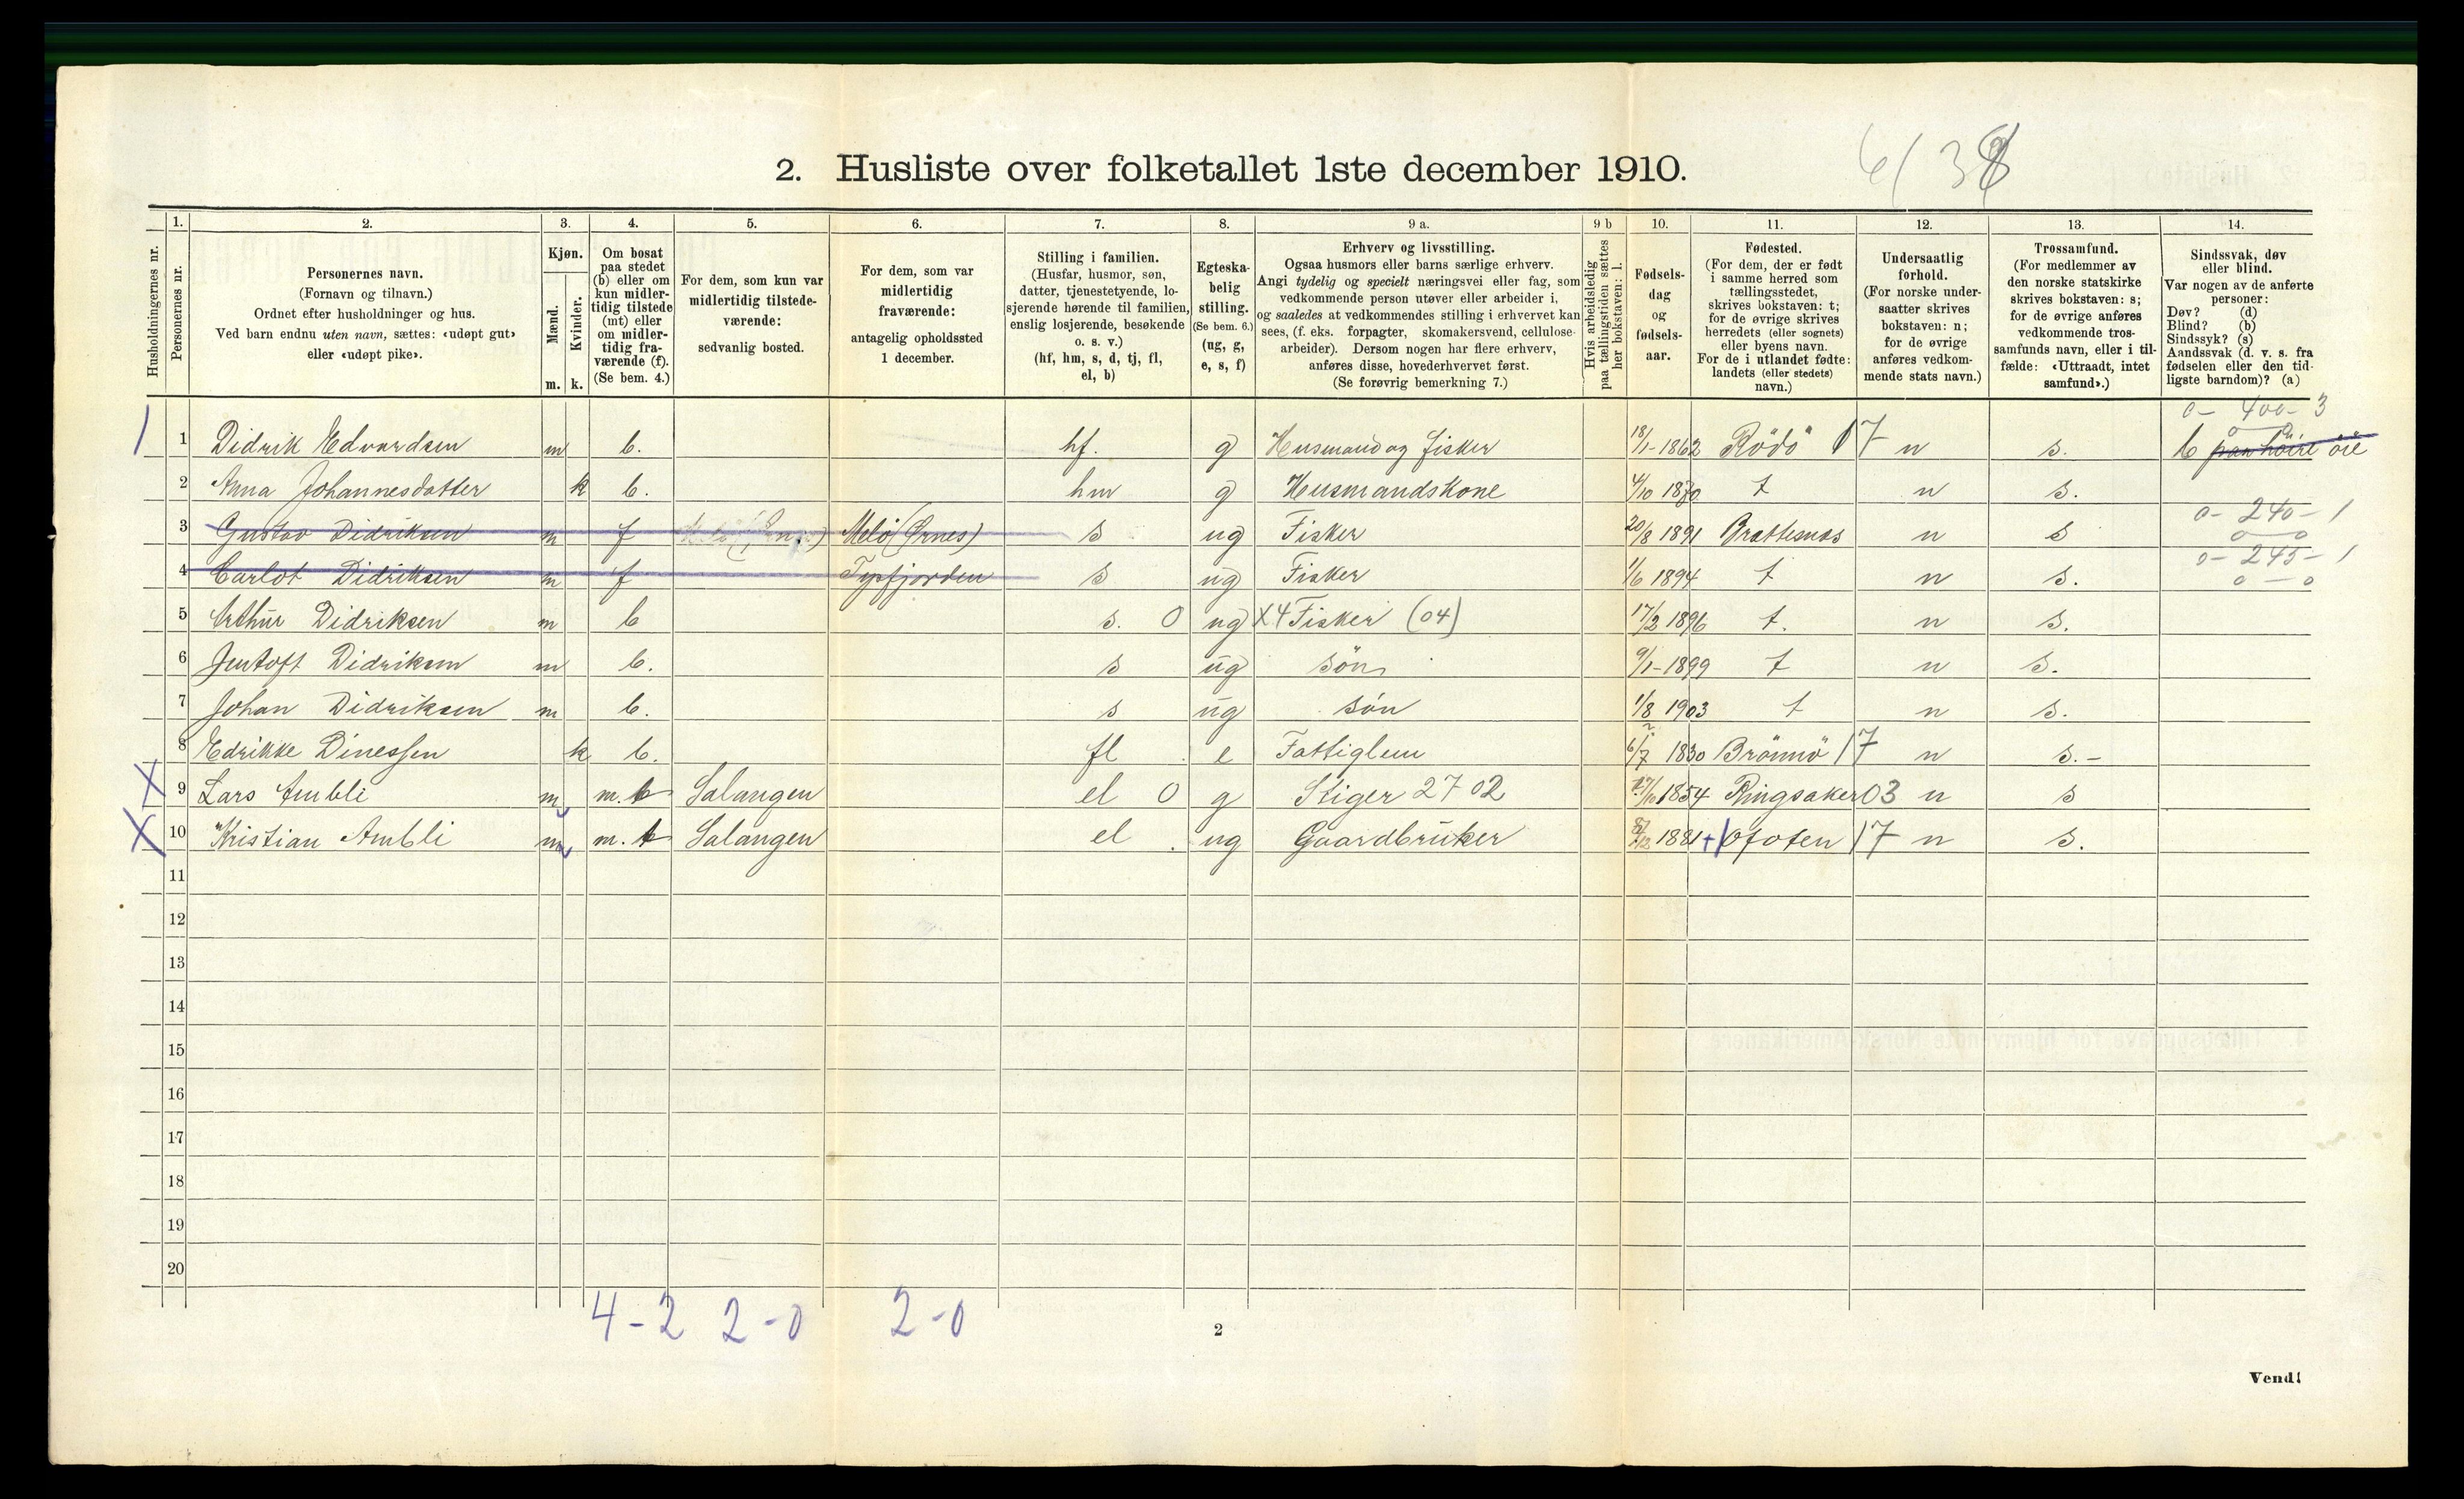 6/38
2. Husliste over folketallet 1ste december 1910.
Husholdningernes nr.
1. Personernes nr.
2. Personernes navn.
(Fornavn og tilnavn.)
Ordnet efter husholdninger og hus.
Ved barn endnu uten navn, sættes: «udøpt gut»
eller «udøpt pike».
3. Kjøn.
Mænd. Kvinder.
m. k.
4. Om bosat
paa stedet
(b) eller om
kun midler-
tidig tilstede
(mt) eller
om midler-
tidig fra-
værende (f).
(Se bem. 4.)
5. For dem, som kun var
midlertidig tilstede-
værende:
sedvanlig bosted.
6. For dem, som var
midlertidig
fraværende:
antagelig opholdssted
1 december.
7. Stilling i familien.
(Husfar, husmor, søn,
datter, tjenestetyende, lo-
sjerende hørende til familien,
enslig losjerende, besøkende
o. s. v.)
(hf, hm, s, d, tj, fl,
el, b)
8. Egteska-
belig
stilling.
(Se bem. 6.)
(ug, g,
e, s, f)
9 a. Erhverv og livsstilling.
Ogsaa husmors eller barns særlige erhverv.
Angi tydelig og specielt næringsvei eller fag, som
vedkommende person utøver eller arbeider i,
og saaledes at vedkommendes stilling i erhvervet kan
sees, (f. eks. forpagter, skomakersvend, cellulose-
arbeider). Dersom nogen har flere erhverv,
anføres disse, hovederhvervet først.
(Se forøvrig bemerkning 7.)
9 b Hvis arbeidsledig
paa tællingstiden sættes
her bokstaven: l.
10. Fødsels-
dag
og
fødsels-
aar.
11. Fødested.
(For dem, der er født
i samme herred som
tællingsstedet,
skrives bokstaven: t;
for de øvrige skrives
herredets (eller sognets)
eller byens navn.
For de i utlandet fødte:
landets (eller stedets)
navn.)
12. Undersaatlig
forhold.
(For norske under-
saatter skrives
bokstaven: n;
for de øvrige
anføres vedkom-
mende stats navn.)
13. Trossamfund.
(For medlemmer av
den norske statskirke
skrives bokstaven: s;
for de øvrige anføres
vedkommende tros-
samfunds navn, eller i til-
fælde: «Uttraadt, intet
samfund».)
14. Sindssvak, døv
eller blind.
Var nogen av de anførte
personer:
Døv? (d)
Blind? (b)
Sindssyk? (s)
Aandssvak (d. v. s. fra
fødselen eller den tid-
ligste barndom)? (a)
0 - 400 - 3
1 Didrik Edvardsen m b. hf. g Husmand og fisker 18/1-1862 Rödö 17 n s. b paa höire öie
2 Anna Johannesdatter k b. hm g Husmandskone 4/10 1870 t n s.
0 - 240 - 1
3 Gustav Didriksen m f Melö (Ørnes) s ug Fisker 20/8 1891 Brattesnæs n s 0 0
0 - 245 - 1
4 Carlot Didriksen m f Tysfjorden s ug Fisker 1/6 1894 t n s. 0 - 0
5 Arthur Didriksen m b s. 0 ug X4 Fisker (04) 17/2 1896 t. n s.
6 Jentoft Didriksen m b. s ug sön 9/1-1899 t n s.
7 Johan Didriksen m b. s ug sön 1/8 1903 t n s.
8 Edrikke Dinessen k b. fl e Fattiglem 6/7 1830 Brönnö 17 n s.-
X 9 Lars Ambli m m. t Salangen el 0 g Stiger 2702 1854 Ringsaker 03 n s
X 10 Kristian Ambli m m. t Salangen el ug Gaardbruker 1881 + Ofoten 17 n s.
11
12
13
14
15
16
17
18
19
20
4 - 2 2 - 0 2 - 0
2
Vend!